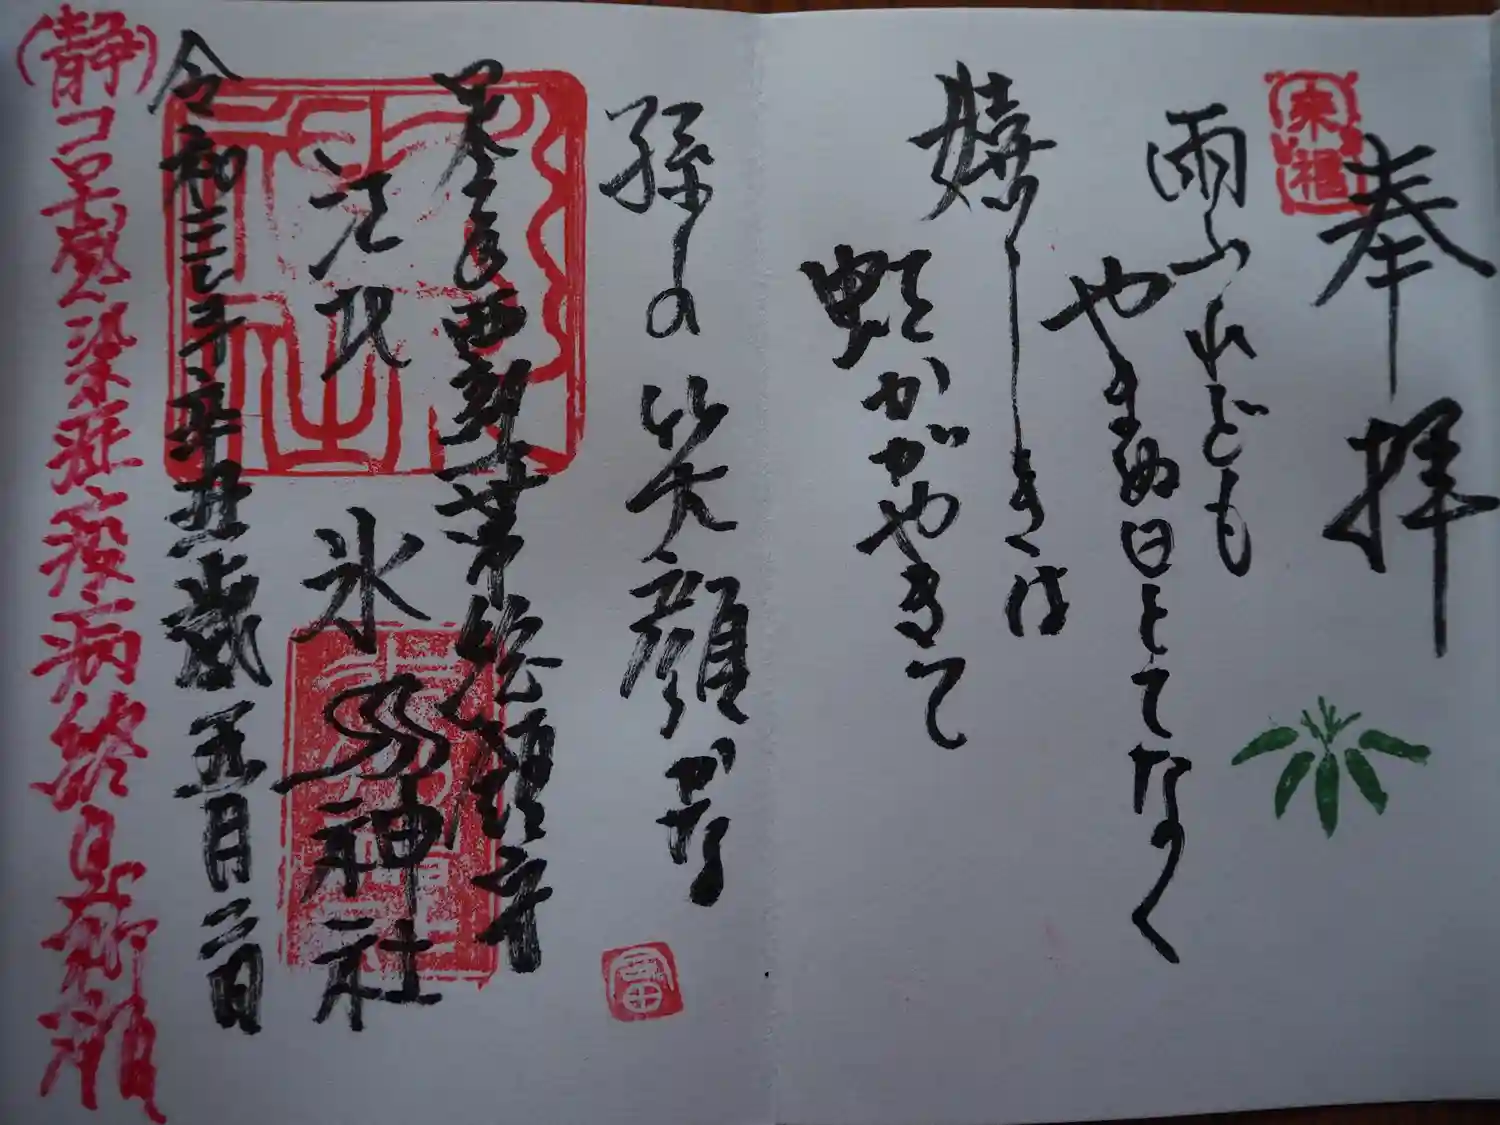 奉拝
雨ふれども
やまぬ日とてなく
嬉しきは
虹かがやきて
孫の笑顔かな
足立西新井総鎮守
江北
氷川神社
令和三年辛丑歳五月二日
(静)コロナ感染症疫病終息祈願
来福
富